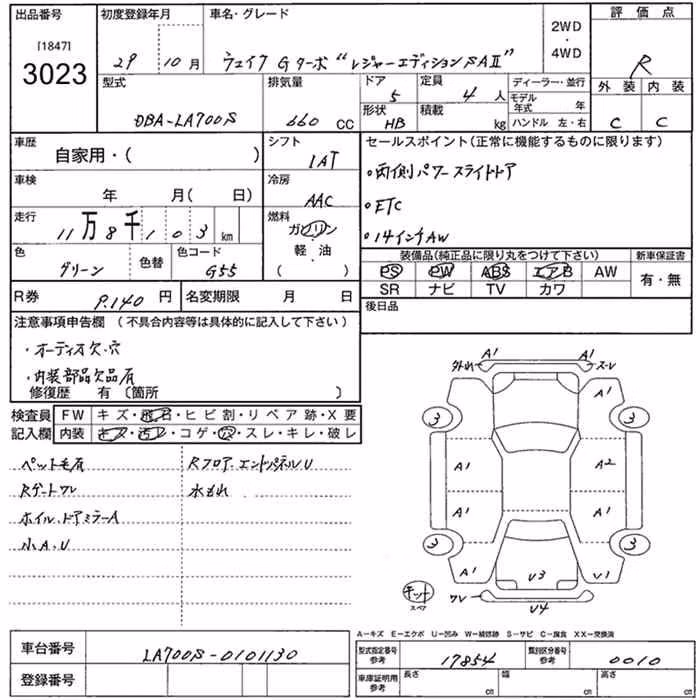 出品番号 初度登録年月 車名・グレード 2WD ・ 4WD 評価点
[1847]
3023
29 10月 ウェイク Gターボ“レジャーエディションSAII” R
型式 排気量 ドア 定員 ディーラー・並行 外装 内装
DBA-LA700S 660 CC 5 4 人 モデル年式 年
形状 HB 積載 kg ハンドル 左・右 C C
車歴 シフト セールスポイント(正常に機能するものに限ります)
自家用・( ) IAT ・両側パワースライドドア
車検 冷房
年 月( 日) AAC ・ETC
走行 燃料
11万8千103km ガソリン ・14インチAW
色 色替 色コード 軽・油 装備品(純正品に限り丸をつけて下さい) 新車保証書
グリーン G55 ( ) PS PW ABS エアB AW 有・無
SR ナビ TV カワ
R券 P.140 円 名変期限 月 日 後日品
注意事項申告欄 (不具合内容等は具体的に記入して下さい)
・オーディオ欠・穴
・内装部品欠品有
修復歴 有 〔箇所 〕
検査員 FW キズ・飛石・ヒビ割・リペア跡・X要
記入欄 内装 キズ・汚レ・コゲ・穴・スレ・キレ・破レ
ペット毛有 Rフロア・エンドパネルU
Rゲートワレ 水もれ
ホイル、ドアミラーA
小A.U
外れ A1 A1 スレ
A1
3 3
A1 A2
A1 A1
3 3
A1 U3 U1
キット
スペア
ワレ U4
A-キズ E-エクボ U-凹み W-補修跡 S-サビ C-腐食 XX-交換済
車台番号 LA700S-0101130 型式指定番号 参考 17854 類別区分番号 参考 0010
登録番号 車庫証明用 参考 長さ cm 幅 cm 高さ cm